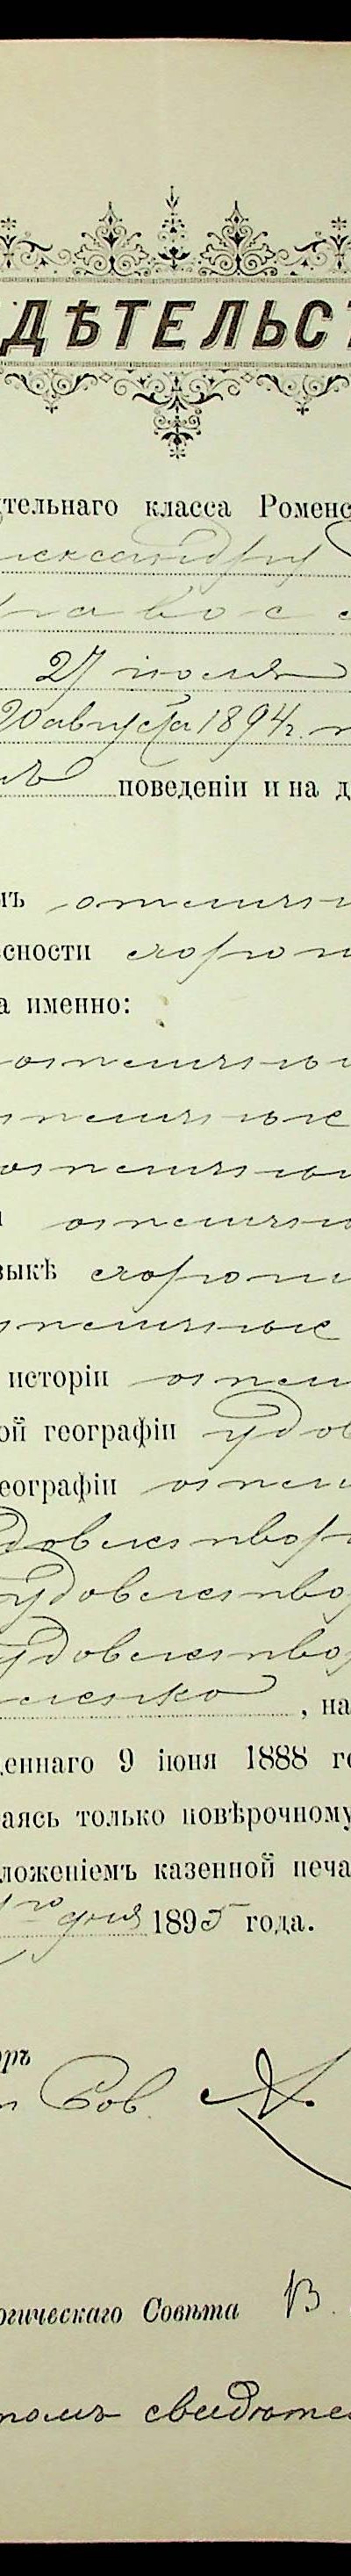 ДѢТЕЛЬС
тельнаго класса Роменс
лександру
а в о с
27 июля
20 августа 1894 г.
поведеніи и на д
мъ отличн
сности хорош
а именно:
отличны
тличные
отличны
отличн
зыкѣ хорош
тличные
исторіи отли
ой географіи удов
еографіи отли
довлетвор
удовлетвор
удовлетвор
ленко, на
еннаго 9 іюня 1888 го
аясь только повѣрочному
ложеніемъ казенной печа
го дня 1895 года.
ръ
Сов
огическаго Совѣта В.
томъ свидѣте